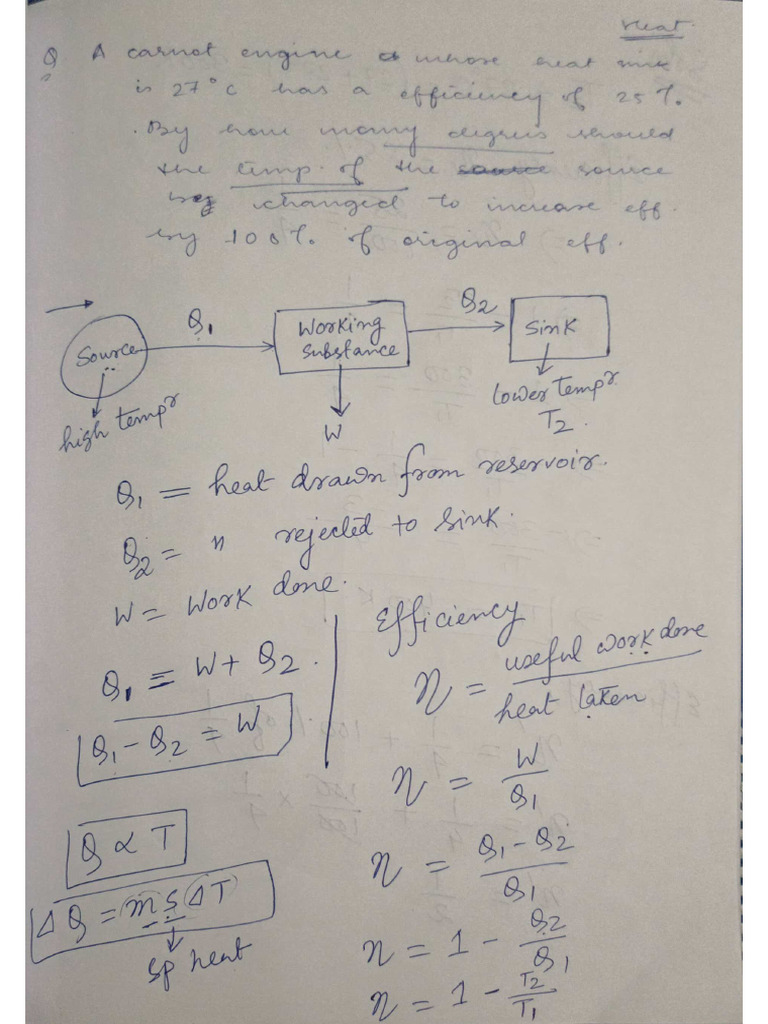 Heat
Q A carnot engine whose heat sink
is 27°C has a efficiency of 25%.
By how many degrees should
the temp. of the source
be changed to increase eff.
by 100% of original eff.
Q₁
Q₂
Source
Working
substance
Sink
high tempr
W
lower tempr.
T₂
Q₁ = heat drawn from reservoir.
Q₂ = " rejected to sink.
W = Work done.
Q₁ = W + Q₂.
Q₁ - Q₂ = W
Q ∝ T
ΔQ = msΔT
sp heat
Efficiency
η = useful work done / heat taken
η = W / Q₁
η = Q₁ - Q₂ / Q₁
η = 1 - Q₂ / Q₁
η = 1 - T₂ / T₁